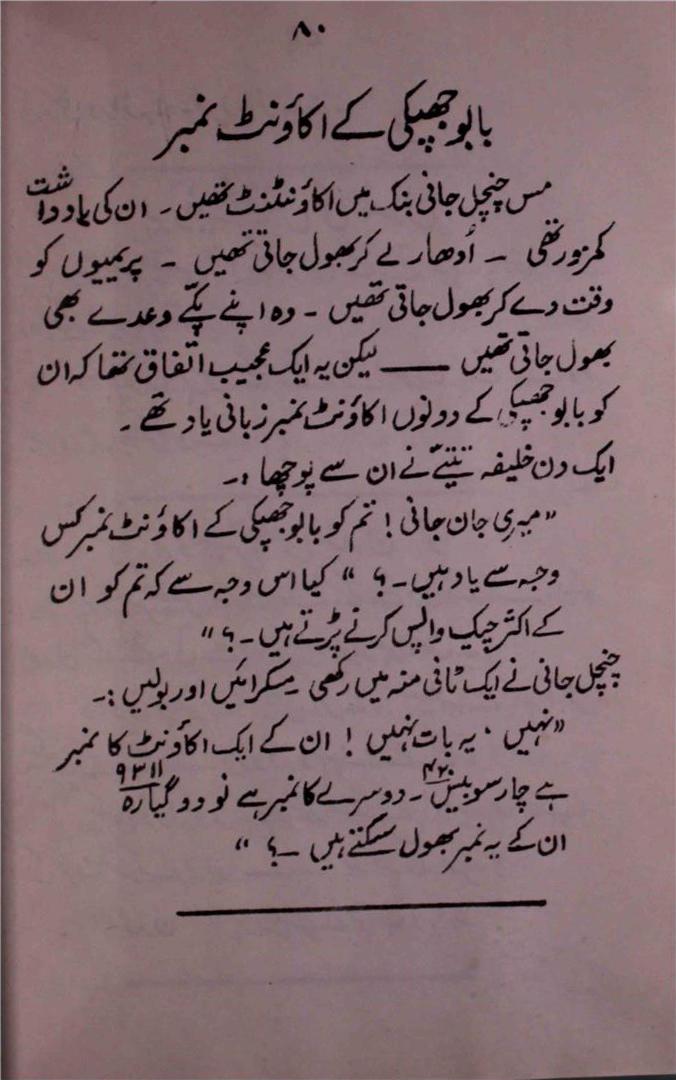 ۸۰
بابو جھپکی کے اکاؤنٹ نمبر
مس چنچل جانی بنک میں اکاؤنٹنٹ تھیں ۔ ان کی یادداشت
کمزور تھی ۔ اُدھار لے کر بھول جاتی تھیں ۔ پریمیوں کو
وقت دے کر بھول جاتی تھیں ۔ وہ اپنے پکّے وعدے بھی
بھول جاتی تھیں ـــــ لیکن یہ ایک عجیب اتفاق تھا کہ ان
کو بابو جھپکی کے دونوں اکاؤنٹ نمبر زبانی یاد تھے ۔
ایک دن خلیفہ نے ان سے پوچھا :۔
"میری جان جانی ! تم کو بابو جھپکی کے اکاؤنٹ نمبر کس
وجہ سے یاد ہیں ۔ ؟ " کیا اس وجہ سے کہ تم کو ان
کے اکثر چیک واپس کرنے پڑتے ہیں ۔ ؟ "
چنچل جانی نے ایک ٹافی منہ میں رکھی ۔ مسکرائیں اور بولیں :۔
"نہیں ، یہ بات نہیں ! ان کے ایک اکاؤنٹ کا نمبر
ہے چار سو بیس ۴۲۰ ۔ دوسرے کا نمبر ہے نو دو گیارہ ۹۲۱۱
ان کے یہ نمبر بھول سکتے ہیں ۔ ؟ "